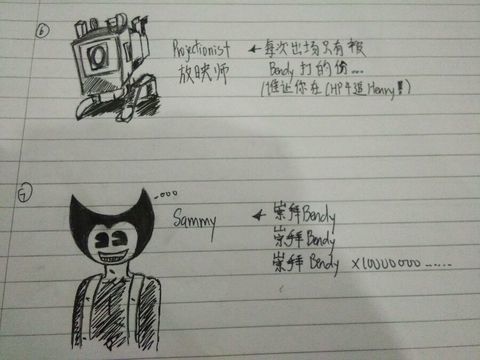 6
Projectionist ← 每次出场只有被
放映师 Bendy 打的份....
(谁让你在CH4追Henry!!)
7
...ooo
Sammy ← 崇拜Bendy
崇拜 Bendy
崇拜 Bendy x10000000......